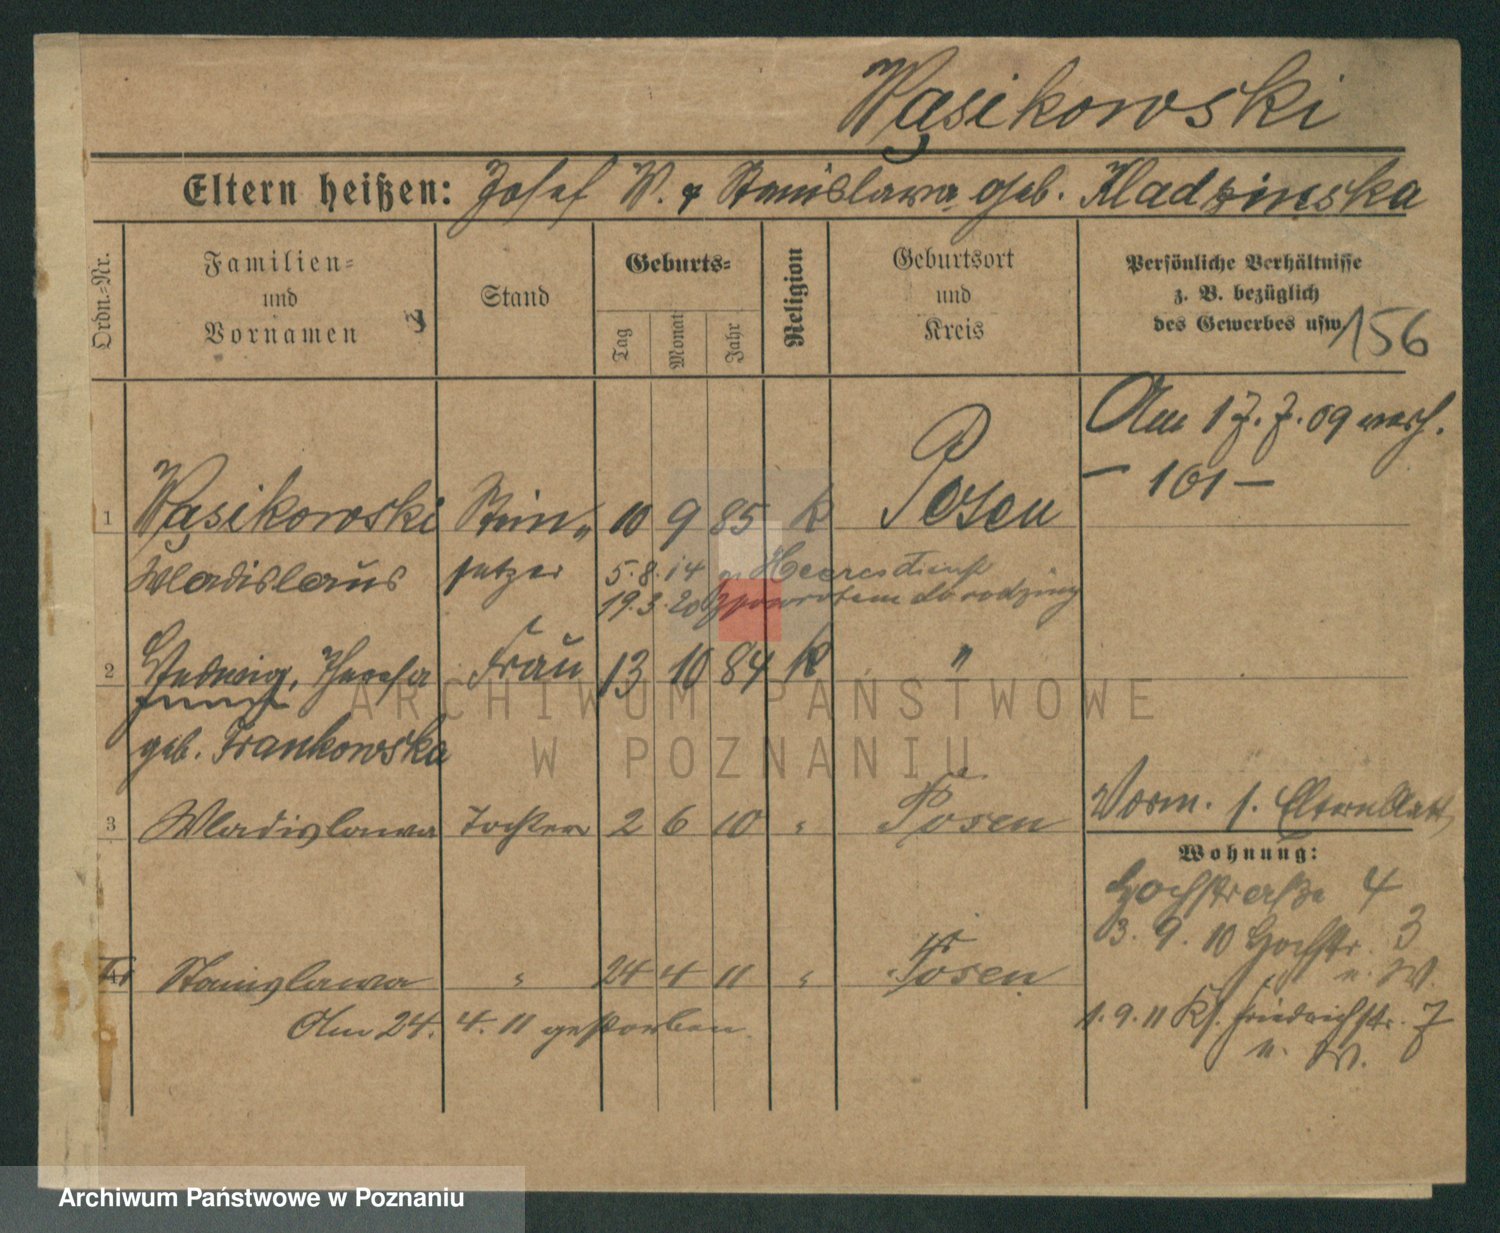 Wąsikowski
Eltern heißen: Josef W. & Stanislawa geb. Kladzinska
Ordn.-Nr.
Familien-
und
Vornamen
Stand
Geburts-
Tag
Monat
Jahr
Religion
Geburtsort
und
Kreis
Persönliche Verhältnisse
z. B. bezüglich
des Gewerbes usw.
156
Am 17.7.09 verh.
— 101 —
1 Wąsikowski Stein- 10 9 85 k Posen
Wladislaus setzer 5.8.14 z. Heeresdienst
19.3.20 z powrotem do rodziny
2 Hedwig, Theresa Frau 13 10 84 k "
geb. Frankowska
3 Wladislawa Tochter 2 6 10 " Posen
Vorm. s. Elternblatt
Wohnung:
Hochstraße 4
3.9.10 Hochstr. 3
n. W.
4 Stanislawa " 24 4 11 " Posen
Am 24.4.11 gestorben
1.9.11 Kl. Friedrichstr. 7
n. W.
ARCHIWUM PAŃSTWOWE
W POZNANIU
Archiwum Państwowe w Poznaniu